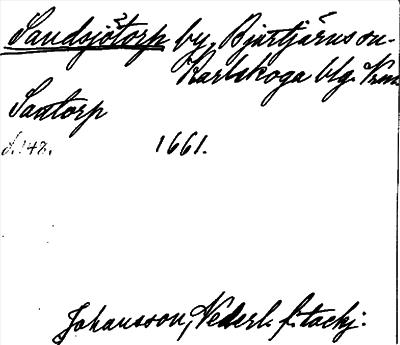 Sandsjötorp by, Bjurtjärns sn -
Karlskoga blg. Vrml
Santorp
s. 148. 1661.
Johansson, Nederl. f.tackj.